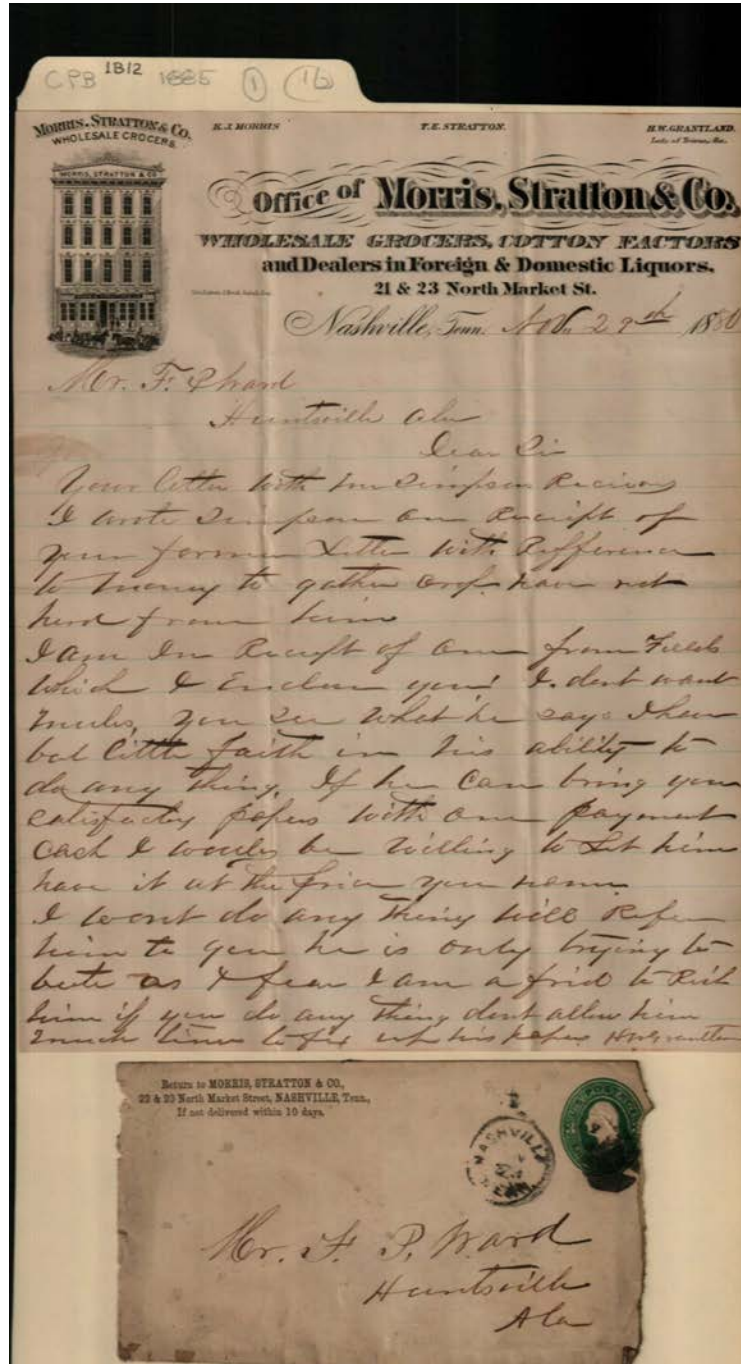 CPB 1B12 1885 1 (16)
MORRIS, STRATTON & CO.
WHOLESALE GROCERS.
MORRIS, STRATTON & CO
K. J. MORRIS T. E. STRATTON. H. W. GRANTLAND.
Late of
Office of Morris, Stratton & Co.,
WHOLESALE GROCERS, COTTON FACTORS
and Dealers in Foreign & Domestic Liquors,
21 & 23 North Market St.
Nashville, Tenn. Nov. 29th 188
Mr. F. P Ward
Huntsville Ala
Dear Sir
Your letter with Simpson
I wrote Simpson on Receipt of
your former Letter with Refference
to money to gather crop. have not
herd from him
I am In Receipt of one from Fields
which I Enclose you I dont want
mules, you see what he says I have
but little faith in his ability to
do any thing. If he can bring you
satisfactory papers with one payment
cash I would be willing to Let him
have it at the price you name
I wont do any thing will Refer
him to you he is only trying to
as I fear I am afrid to Risk
him if you do any thing dont allow him
much time to fix up his papers HWGrantland
Return to MORRIS, STRATTON & CO.,
22 & 23 North Market Street, NASHVILLE, Tenn.,
If not delivered within 10 days.
NASHVILLE
TENN.
Mr. F. P. Ward
Huntsville
Ala